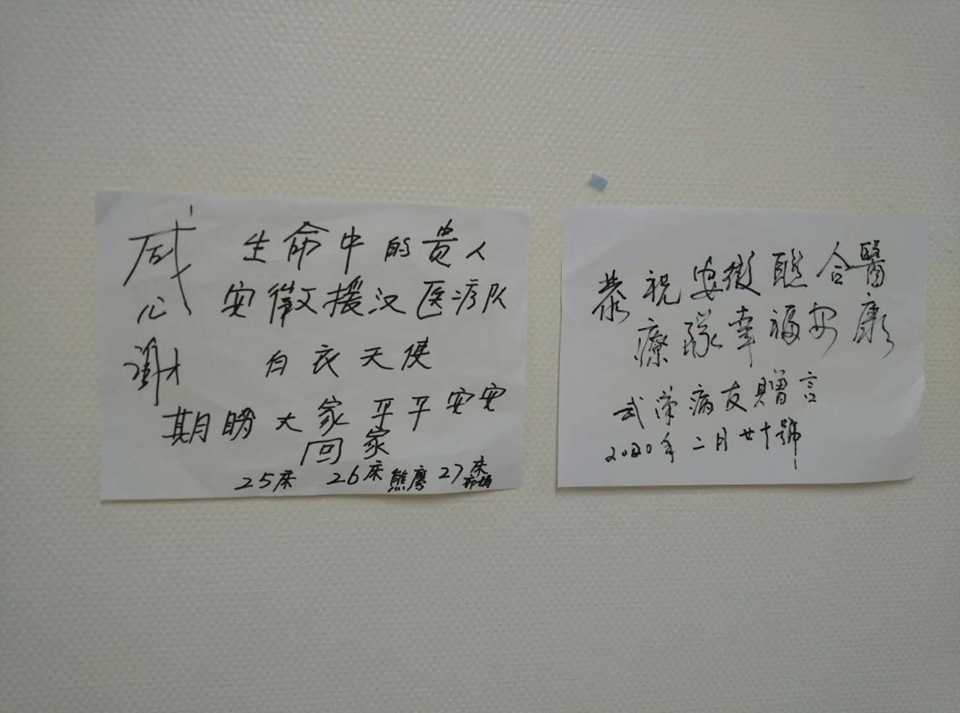 感谢
生命中的贵人
安徽援汉医疗队
白衣天使
期盼大家平平安安
回家
25床 26床 熊 27床
恭祝安徽聯合醫
療隊幸福安康
武 病友贈言
2020年二月廿十號